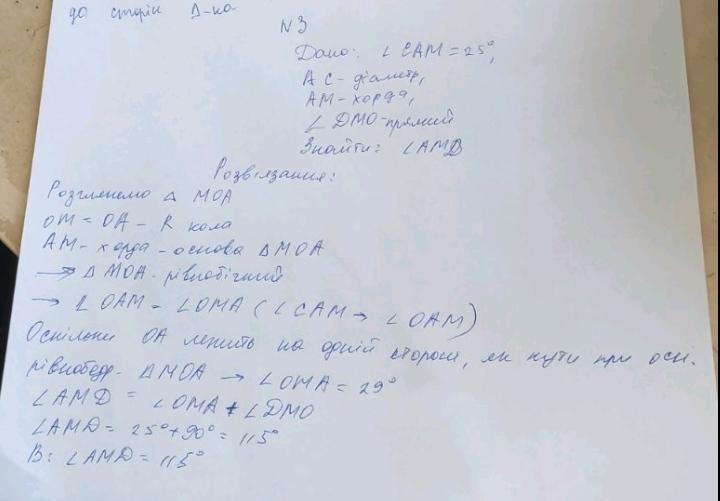 до сторін Δ-ка
N3
Дано: ∠CAM = 25°,
AC - діаметр,
AM - хорда,
∠DMO - прямий
Знайти: ∠AMD
Розв'язання:
Розглянемо Δ MOA
OM = OA - R кола
AM - хорда - основа ΔMOA
→ Δ MOA - рівнобічний
→ ∠OAM = ∠OMA (∠CAM → ∠OAM)
Оскільки OA лежить на одній стороні, як кути при осн.
рівнобедр. ΔMOA → ∠OMA = 29°
∠AMD = ∠OMA + ∠DMO
∠AMD = 25° + 90° = 115°
В: ∠AMD = 115°